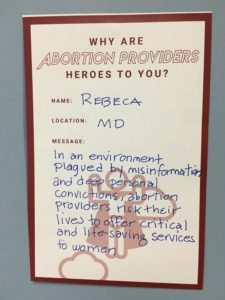 WHY ARE
ABORTION PROVIDERS
HEROES TO YOU?
NAME: REBECA
LOCATION: MD
MESSAGE:
In an environment
plagued by misinformation
and deep personal
convictions, abortion
providers risk their
lives to offer critical
and life-saving services
to women